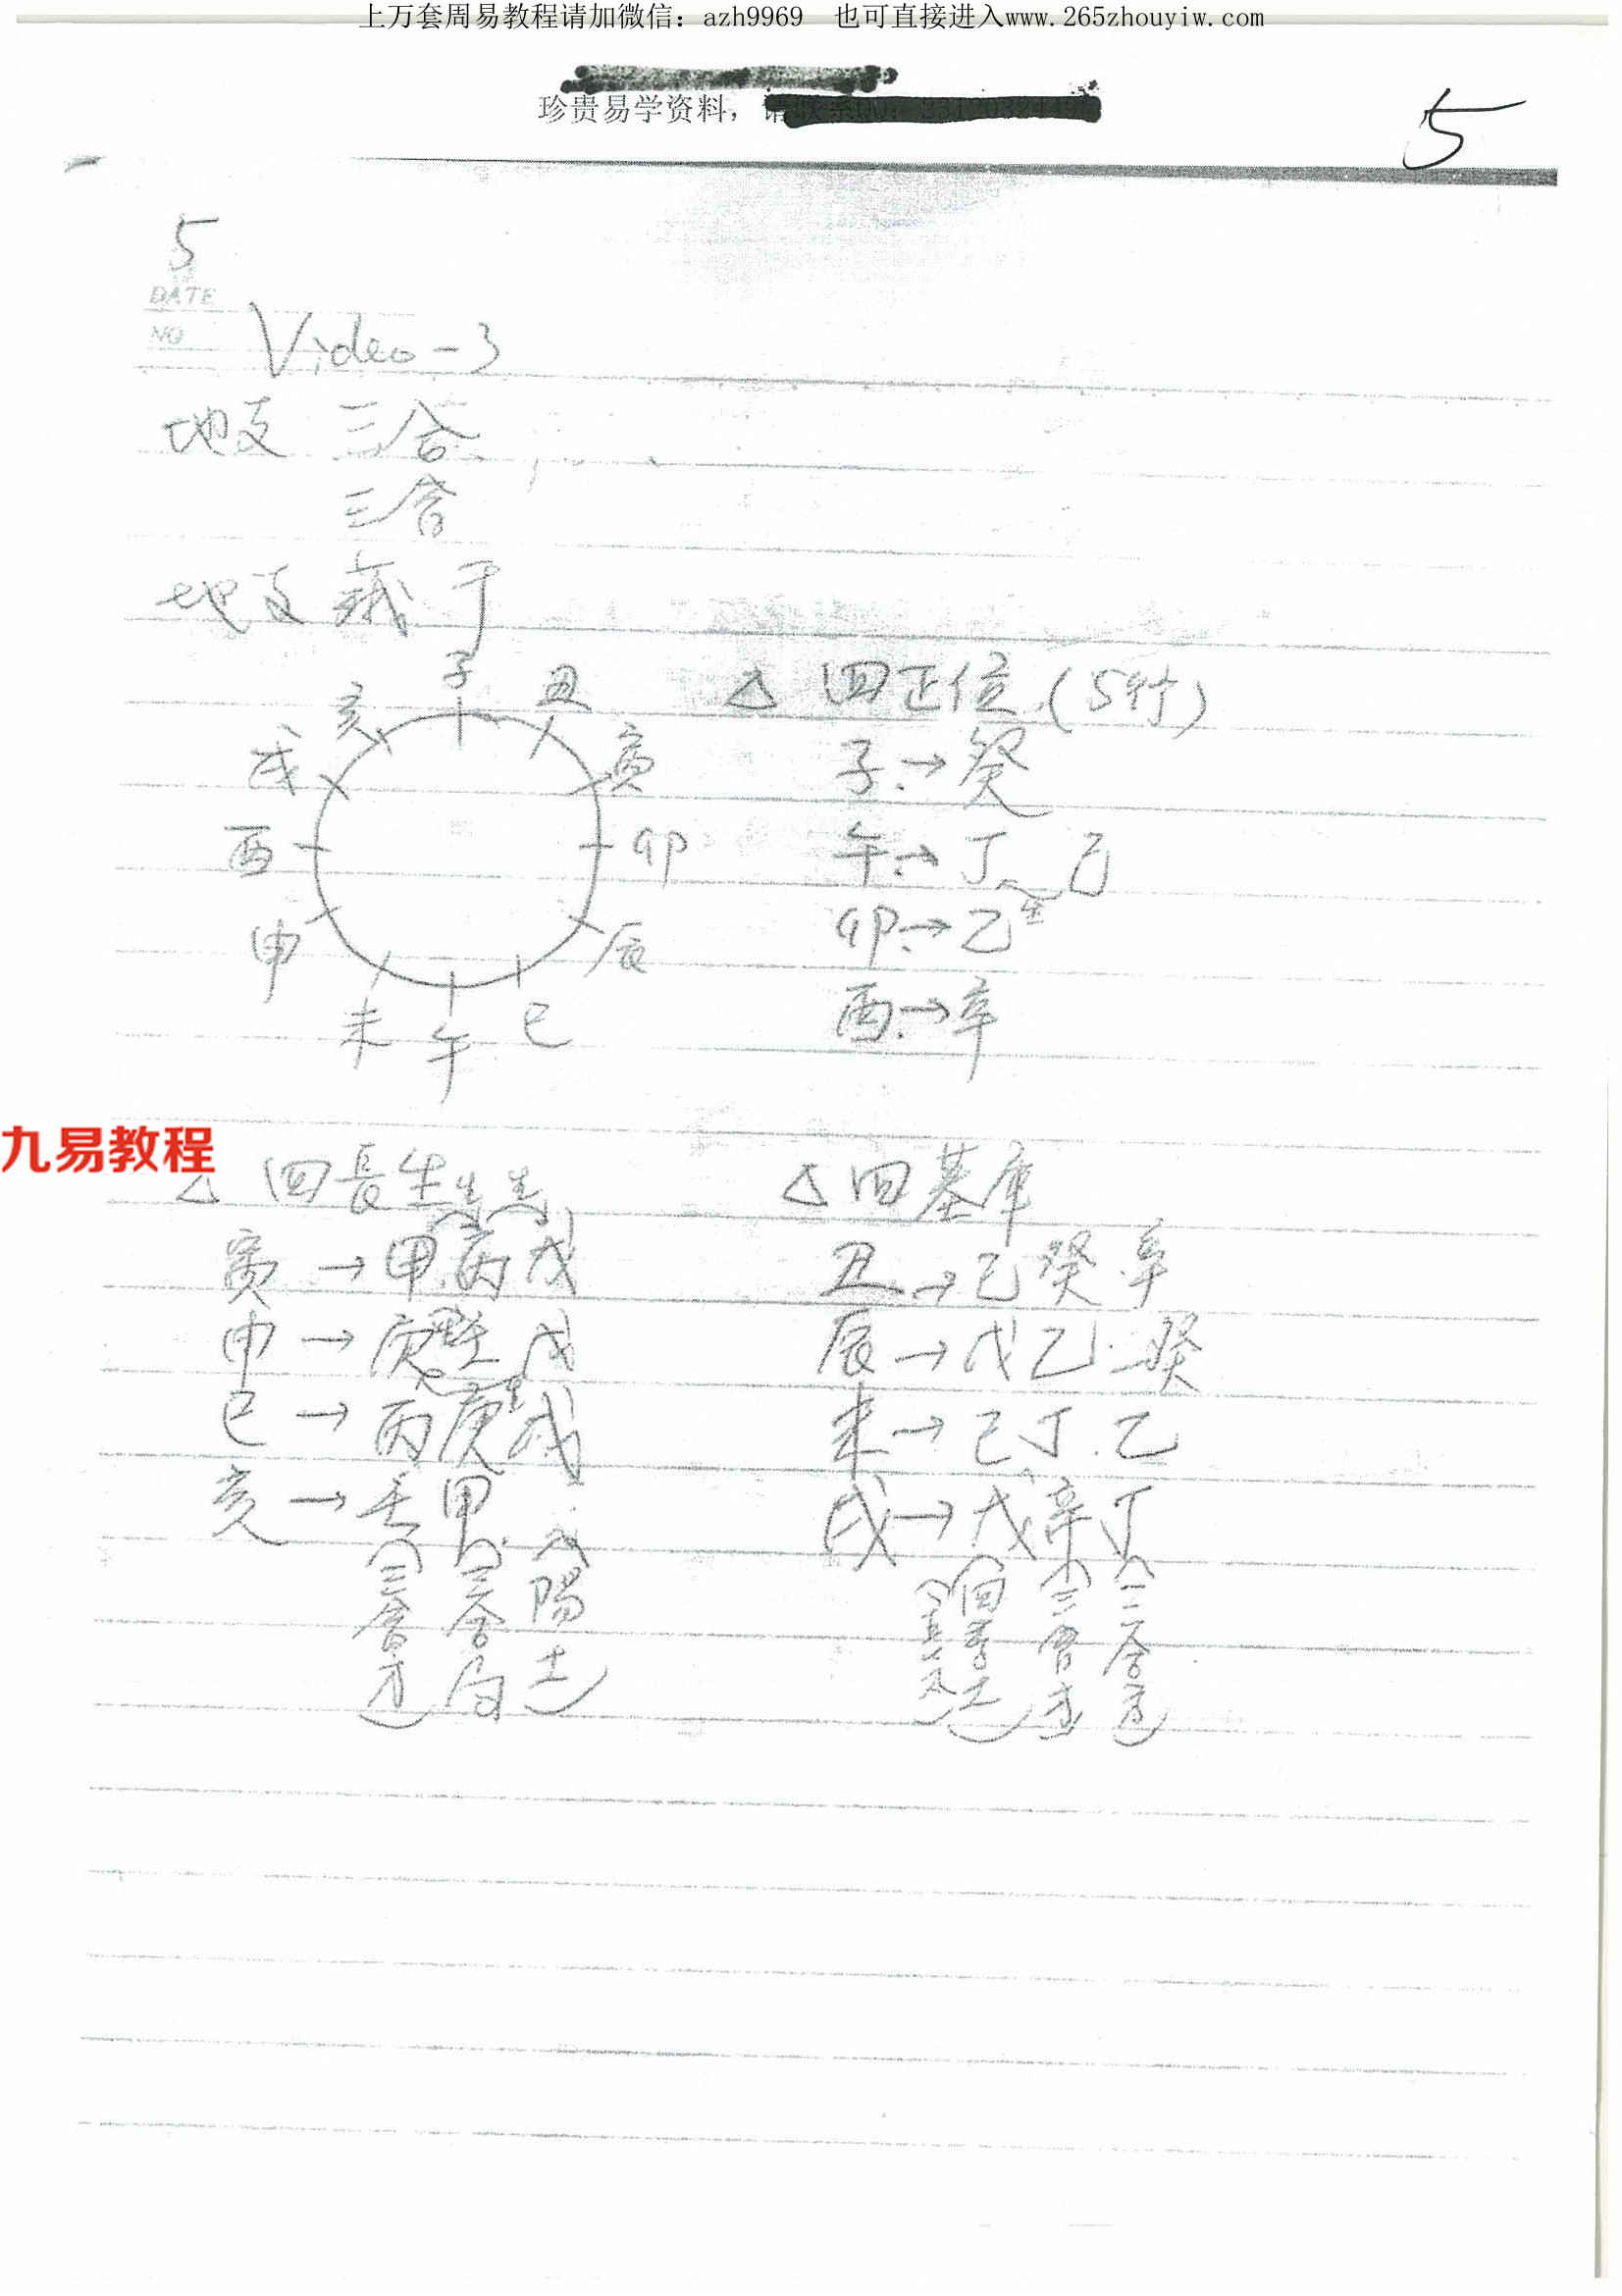 上万套周易教程请加微信：azh9969 也可直接进入www.265zhouyiw.com
珍贵易学资料，
5
5
DATE
NO
Video-3
地支 三合
三會
地支 藏干
子
丑
寅
卯
辰
巳
午
未
申
酉
戌
亥
△ 四正位 (5行)
子→癸
午→丁 己
生
卯→乙
酉→辛
九易教程
△ 四長生
生 生
寅→甲 丙 戊
申→庚 壬 戊
生
巳→丙 庚 戊
亥→壬 甲
(三會方)
(三合局)
(戊陽土)
△ 四墓庫
丑→己 癸 辛
辰→戊 乙 癸
未→己 丁 乙
戌→戊 辛 丁
(四季土)
(三會方)
(三合